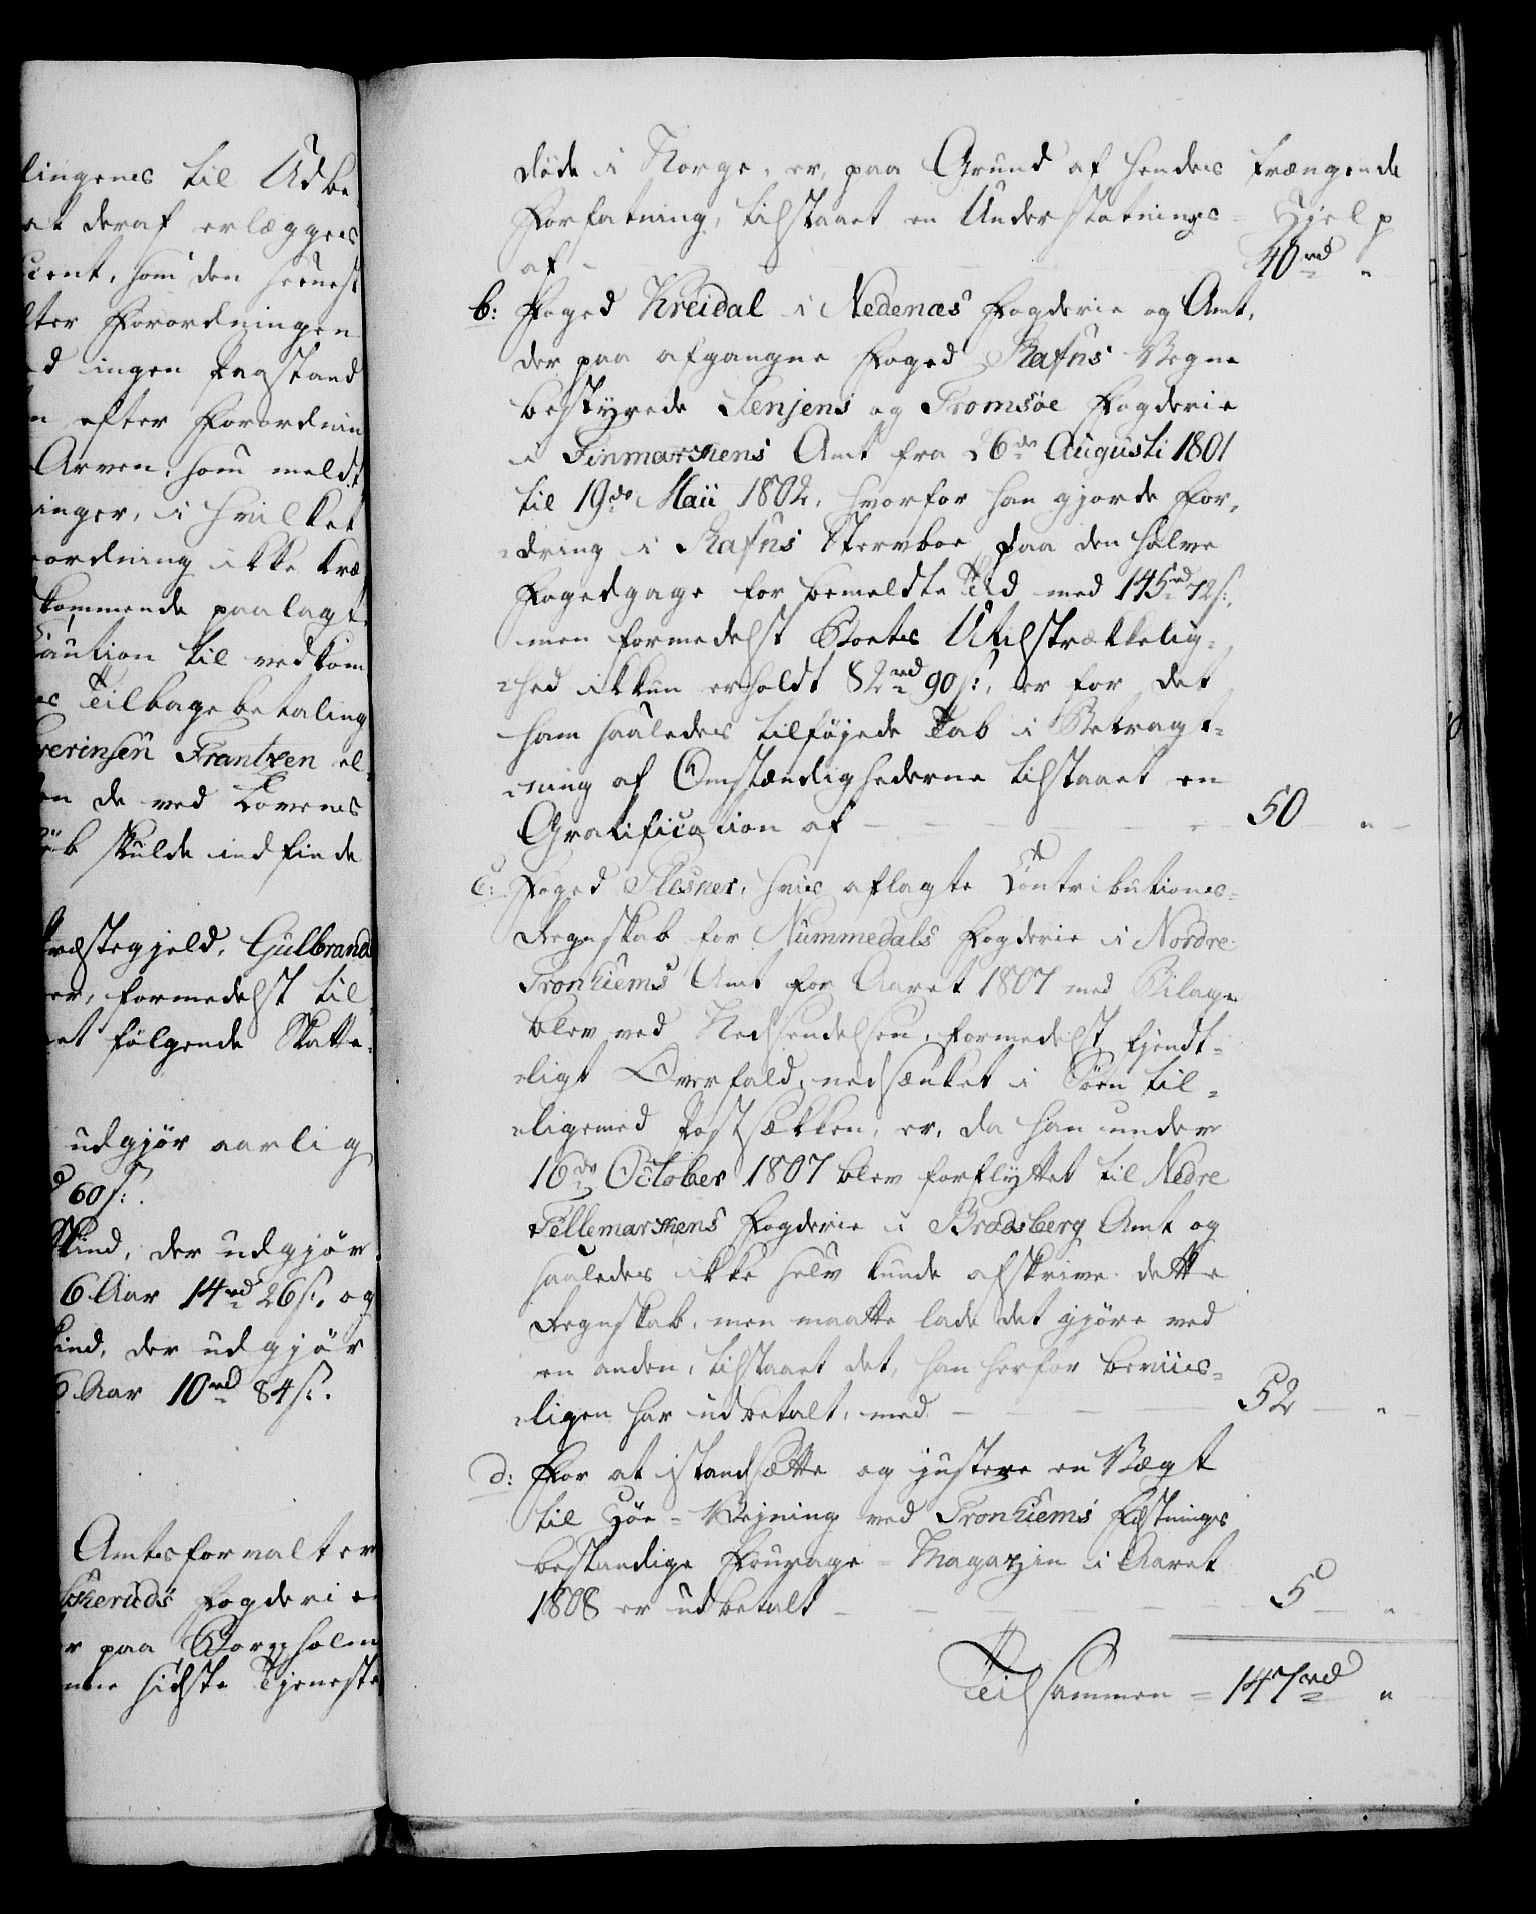 lingenes til Udbe
at deraf erlægges
cent, som den seenest
fter Forordningen
d ingen Paastand
n efter Forordnin
Arven, som meldt
inger, i hvilket
ordning ikke kræ
kommende paalagt
Caution til vedkom
es Tilbagebetaling
Frantzen el
en de ved Lovens
skulde indfinde
ræstegjeld, Gulbrand
er, formedelst til
et følgende Skatte
udgjør aarlig
60 s:.
Skind, der udgjør
6 Aar 14rd 26 s:, og
ind, der udgjør
6 Aar 10rd 84 s:.
Amtsforvalter
skeruds Fogderie
r paa Bornholm
nne sidste Tjeneste
døde i Norge, er, paa Grund af hendes trængende
Forfatning, tilstaaet en Understøtnings-Hjelp
af - 40rd "
b: Foged Kreidal i Nedenæs Fogderie og Amt,
der paa afgangne Foged Rafns Vegne
bestyrede Senjens og Tromsöe Fogderie
i Finmarkens Amt fra 26de Augusti 1801
til 19de Maii 1802, hvorfor han gjorde For-
dring i Rafns Stervboe paa den halve
Fogedgage for bemeldte Tid med 145rd 72 s:,
men formedelst Boets Utilstrækkelig-
hed ikkun erholdt 82rd 90 s:, er for det
ham saaledes tilføjede Tab i Betragt-
ning af Omstændighederne tilstaaet en
Gratification af - 50 "
c: Foged Plesner, hvis aflagte Contributions-
Regnskab for Nummedals Fogderie i Nordre
Tronhiems Amt for Aaret 1807 med Bilage
blev ved Nedsendelsen, formedelst fjendt-
ligt Overfald, nedsænket i Søen til-
ligemed Postsækken, er, da han under
16de October 1807 blev forflyttet til Nedre
Tellemarkens Fogderie i Bradsberg Amt og
saaledes ikke selv kunde afskrive dette
Regnskab, men maatte lade det gjøre ved
en anden, tilstaaet det, han herfor beviis-
ligen har udbetalt, med - 52 "
d: For at istandsætte og justere en Vægt
til Høe-Vejning ved Tronhiems Fæstnings
bestandige Fourage-Magazin i Aaret
1808 er udbetalt - 5 "
Tilsammen = 147rd "